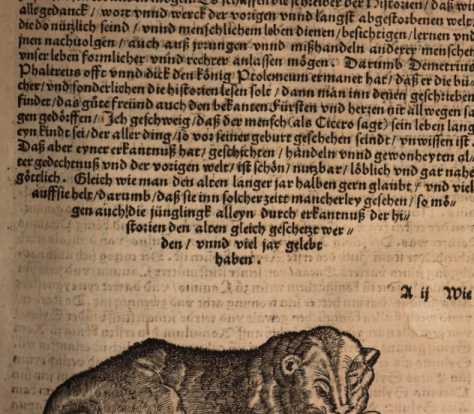 mögen. Es schaffen die schreiber der Historien / daß wir
allegedanck / wort vnnd werck der vorigen vnnd längst abgestorbenen welt
die do nützlich seind / vnnd menschlichem leben dienen / besichtigen / lernen vnd
jnen nachuolgen / auch auß jrrungen vnnd mißhandeln anderer menschen
vnser leben formlicher vnnd rechter anlassen mögen. Darumb Demetrius
Phalereus offt vnnd dick den könig Ptolemeum ermanet hat / daß er die bü
cher / vnd sonderlichen die historien lesen solt / dann man inn denen geschrieben
findet / das güte freünd auch den bekanten Fürsten vnd herzen nit allwegen sa
gen gedörffen / Ich geschweig / daß der mensch (als Cicero sagt) sein leben lang
eyn kindt sei / der aller ding / so vor seiner geburt geschehen seindt / vnwissen ist.
Daß aber eyner erkantnuß hat / geschichten / händeln vnnd gewonheyten al
ter gedechtnuß vnd der vorigen welt / ist schön / nutzbar / löblich vnd gar nahe
göttlich. Gleich wie man den alten langer jar halben gern glaubt / vnd viel
auff sie helt / darumb / daß sie inn solcher zeitt mancherley gesehen / so mö⸗
gen auch die jünglingk alleyn durch erkantnuß der hi⸗
storien den alten gleich geschetzt wer⸗
den / vnnd viel jar gelebt
haben.
A ij Wie